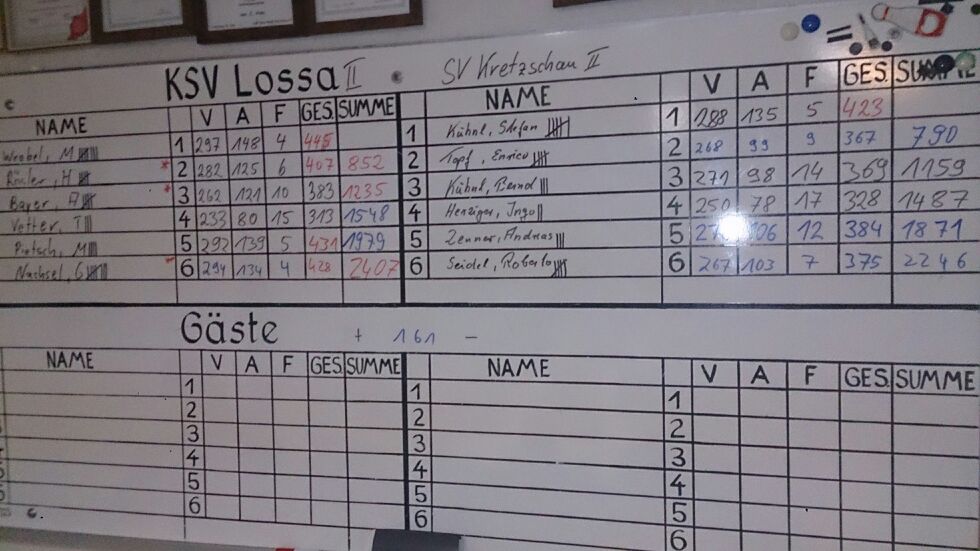 KSV Lossa II
SV Kretzschau II
NAME V A F GES. SUMME
NAME V A F GES. SUMME
Wrobel, M 1 297 148 4 445
H 2 282 125 6 407 852
Bayer, A 3 262 121 10 383 1235
Vetter, T 4 233 80 15 313 1548
Pietsch, M 5 292 139 5 431 1979
Nachsel, G 6 294 134 4 428 2407
1 Kühnl, Stefan 1 288 135 5 423
2 Topf, Enrico 2 268 99 9 367 790
3 Kühnl, Bernd 3 271 98 14 369 1159
4 Herziger, Ingo 4 250 78 17 328 1487
5 Zenner, Andreas 5 106 12 384 1871
6 Seidel, Roberto 6 267 103 7 375 2246
Gäste + 161 -
NAME V A F GES. SUMME
NAME V A F GES. SUMME
1
2
3
4
5
6
1 1
2 2
3 3
4 4
5 5
6 6